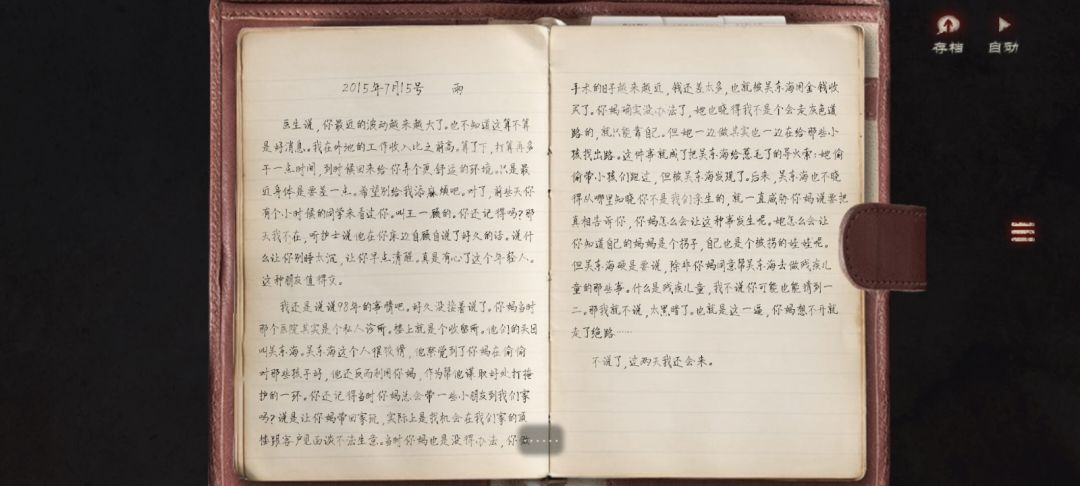 存档 自动
2015年7月15号 雨
医生说，你最近的波动越来越大了。也不知道这算不算
是好消息。我在外地的工作收入比之前高。算了下，打算再多
干一点时间，到时候回来给你弄个更舒适的环境。只是最
近身体是要差一点。希望别给我添麻烦吧。对了，前些天你
有个小时候的同学来看过你。叫王一顾的。你还记得吗？那
天我不在，听护士说他在你床边自顾自说了好久的话。说什
么让你别睡太沉，让你早点清醒。真是有心了这个年轻人。
这种朋友值得交。
我还是说说98年的事情吧。好久没接着说了。你妈当时
那个医院其实是个私人诊所。楼上就是个收容所。他们的头目
叫吴东海。吴东海这个人很狡猾，他察觉到了你妈在偷偷
对那些孩子好，他还反而利用你妈，作为帮他谋取好处打掩
护的一环。你还记得当时你妈总会带一些小朋友到我们家
吗？说是让你妈带回家玩，实际上是找机会在我们家的顶
楼跟客户见面谈不法生意。当时你妈也是没得办法，你做
手术的日子越来越近，钱还差太多，也就被吴东海用金钱收
买了。你妈确实没办法了，她也晓得我不是个会走灰色道
路的，就只能靠自己。但她一边做其实也一边在给那些小
孩找出路。这件事就成了把吴东海给惹毛了的导火索：她偷
偷带小孩们跑过，但被吴东海发现了。后来，吴东海也不晓
得从哪里知晓你不是我们亲生的，就一直威胁你妈说要把
真相告诉你，你妈怎么会让这种事发生呢。她怎么会让
你知道自己的妈妈是个拐子，自己也是个被拐的娃娃呢。
但吴东海硬是要说，除非你妈同意帮吴东海去做残疾儿
童的那些事。什么是残疾儿童，我不说你可能也能猜到一
二。那我就不说，太黑暗了。也就是这一逼，你妈想不开就
走了绝路……
不说了，过两天我还会来。